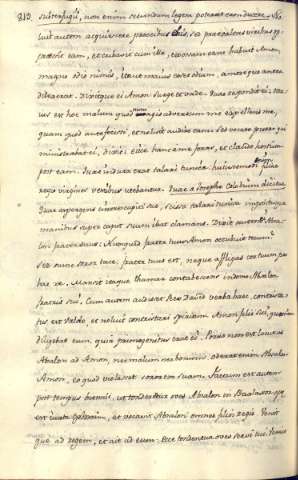 210. subterfugij, non enim secundum legem poterat eam ducere. No
luit autem acquiescere precibus eius, sed praevalens viribus op
pressit eam, et cubavit cum illa, et exosam eam habuit Amon
magno odio nimis, ita ut maius esset odium, amore quo antea
dilexerat. Dixitque ei Amon: surge et vade. Quae respondit ei:
maius est hoc malum quod nunc agis adversum me expellens me,
quam quod ante fecisti, et noluit audire eam: sed vocato puero, qui
ministrabat ei, dixit: eiice hanc a me foras, et claude hostium
post eam. Quae induta erat talari tunica: huiusmodi enim filiae
regis virgines vestibus utebantur.
Quae aspergens cinerem capiti suo, scissa talari tunica impositisque
manibus super caput suum ibat clamans. Dixit autem ei Absa
lon frater suus: Numquid frater tuus Amon concubuit tecum?
sed nunc soror tace, frater tuus est, neque affligas cor tuum pro
hac re. Mansit itaque Thamar contabescens in domo Absalon
fratris sui. Cum autem audisset Rex David verba haec, contrista
tus est valde, et noluit contristari spiritum Amon filii sui, quoniam
diligebat eum, quia primogenitus erat ei. Porro non est locutus
Absalon ad Amon, nec malum nec bonum: oderat enim Absalon
Amon, eo quod violasset sororem suam. Factum est autem
post tempus biennii, ut tonderentur oves Absalon in Baalasor, quae
est iuxta Ephraim, et vocavit Absalon omnes filios regis. Venit
que ad regem, et ait ad eum: Ecce tondentur oves servi tui. Veniat